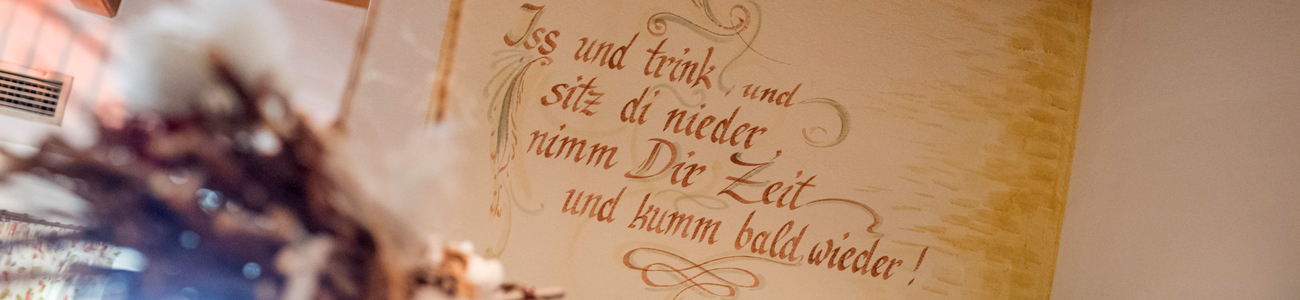 Iss und trink, und
sitz di nieder,
nimm Dir Zeit
und kumm bald wieder!